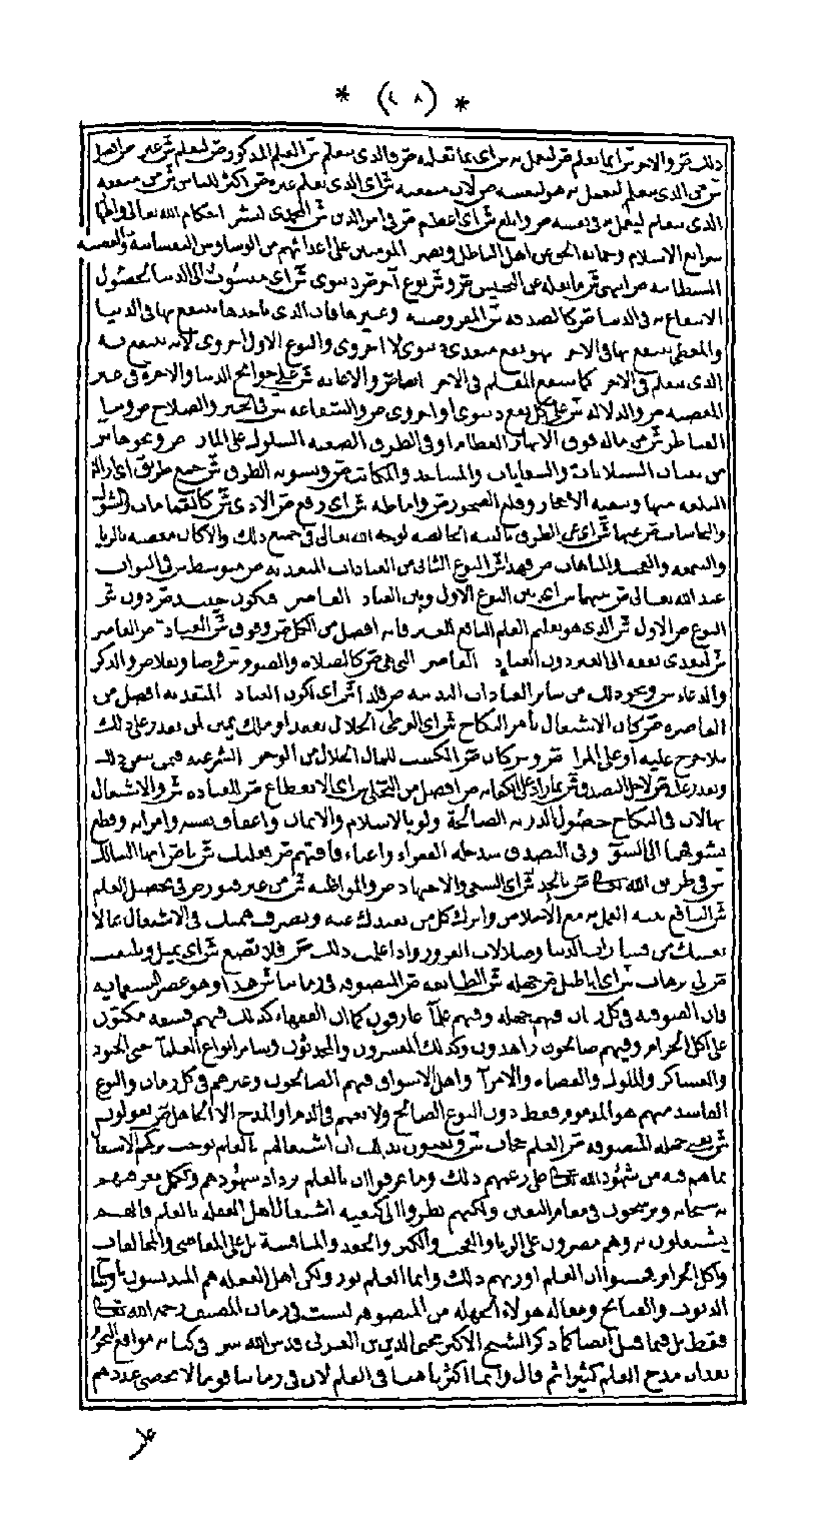 * (٤٠٨) *
ذلك ص و الاخر ش انما تعلم ص ليعمل به ش اى بما تعلمه ص والذى يتعلم ش العلم المذكور ص ليعلم ش غيره ص ايضا
ش من الذى يتعلم ليعمل به هو لنفسه ص لان منفعة ش اى الذى يتعلم غيره ص اكثر للناس ش من منفعة
الذى يتعلم ليعمل به فى نفسه ص وابلغ ش اى اعظم ص فى امر الدين ش المحمدى لنشر احكام الله تعالى واظهار
شرايع الاسلام وحماية الحق عن اهل الباطل ونصر المؤمنين على اعدائهم من الوساوس النفسانية والفتنة
الشيطانية ص انتهى ش ما نقله عن التجنيس ص و ش نوع آخر ص دنيوى ش اى منسوب الى الدنيا لحصول
الانتفاع به فى الدنيا ص كالصدقة ش المفروضة وغيرها فان الذى ياخذها ينتفع بها فى الدنيا
والمعطى ينتفع بها فى الآخرة فهو نفع متعدى دنيوى لا اخروى والنوع الاول اخروى لانه ينتفع به
الذى يتعلم فى الآخرة كما ينتفع المعلم فى الآخرة ايضا ص والاعانة ش على حوائج الدنيا والآخرة فى غير
المعصية ص والدلالة ش على كل نفع دنيوى او اخروى ص والشفاعة ش فى الخير والصلاح ص وبناء
القناطر ش من ماله فوق الانهار العظام او فى الطرق الصعبة السلوك على المارة ص ونحوها ش
من بنيان السبيلات والسقايات والمساجد والمكاتب ص وتسوية الطرق ش جمع طريق اى ازالة
التلعة منها وتنقية الاحجار وقلع الصخور ص واماطة ش اى رفع ص الاذى ش كالقمامات والشوك
والنجاسات ص عنها ش اى عن الطرق بالنية الخالصة لوجه الله تعالى فى جميع ذلك والا كان معصية بالريا
والسمعة والعجب والمباهات ص فهذا ش النوع الثانى من العبادات المتعدية ص متوسط ش فى الثواب
عند الله تعالى ص بينهما ش اى بين النوع الاول وبين العبادة القاصرة فيكون حينئذ ص دون ش
النوع ص الاول ش الذى هو تعليم العلم النافع للغير فانه افضل من الكل ص وفوق ش العبادة ص القاصرة
ش لتعدى نفعه الى الغير دون العبادة القاصرة التى هى ص كالصلاة والصوم ش فرضا ونفلا ص والذكر
والدعاء ش ونحو ذلك من سائر العبادات البدنية ص فلذا ش اى لكون العبادة المتعدية افضل من
القاصرة ص كان الاشتغال بامر النكاح ش اى الوطئ الحلال بعقد او ملك يمين لمن يقدر على ذلك
بلا حرج عليه او على المراة ص و ش كان ص الكسب للمال الحلال من الوجوه الشرعية فيمن يحسن ذلك
ويقدر عليه ص لاجل التصدق ش بما زاد على الكفاية ص افضل من التخلى ش اى الانقطاع ص للعبادة ش والاشتغال
بها لان فى النكاح حصول الذرية الصالحة ولو بالاسلام والايمان واعفاف نفسه وامراته وقطع
تشوقهما الى السوء وفى التصدق سد خلة الفقراء واغناء فاقتهم ص فعليك ش يا ص ايها السالك
ش فى طريق الله تعالى ص بالجد ش اى السعى والاجتهاد ص والمواظبة ش من غير فتور ص فى تحصيل العلم
ش النافع بنية العمل به مع الاخلاص واترك كل من يصدك عنه ويصرف همتك فى الاشتغال بما لا
يعنيك من قبائح الدنيا وضلالات الغرور واذا علمت ذلك ص فلا تصغ ش اى تميل وتلتفت
ص الى ترهات ش اى اباطيل ص جهلة ش الطائفة ص المتصوفة فى زماننا ش هذا وهو عصر التسعمائة
فان الصوفية فى كل زمان فيهم جهلة وفيهم علماء عارفون كما ان الفقهاء كذلك فيهم فسقة مكبون
على اكل الحرام وفيهم صالحون زاهدون وكذلك المفسرون والمحدثون وسائر انواع العلماء حتى الجنود
والعساكر والملوك والقضاة والامراء واهل الاسواق فيهم الصالحون وغيرهم فى كل زمان والنوع
الفاسد منهم هو المذموم فقط دون النوع الصالح ولا يعمهم فى الذم او المدح الا الجاهل ص يقولون
ش يعنى جهلة المتصوفة ص العلم حجاب ش ويعنون بذلك ان اشتغالهم بالعلم يوجب تركهم الاشتغال
بما هم فيه من شهود الله تعالى على زعمهم ذلك وما عرفوا ان بالعلم يزداد شهودهم وتكمل معرفتهم
به سبحانه ويرسخون فى مقام اليقين ولكنهم نظروا الى كيفية اشتغال اهل الغفلة بالعلم فانهم
يشتغلون به وهم مصرون على الريا والعجب والكبر والحقد والمنافسة بل على المعاصى والمخالفات
واكل الحرام فحسبوا ان العلم اورثهم ذلك وانما العلم نور ولكن اهل الغفلة هم المدنسون باوساخ
الذنوب والقبائح ومقالة هؤلاء الجهلة من المتصوفة ليست فى زمان المصنف رحمه الله تعالى
فقط بل فيما قبل ايضا كما ذكر الشيخ الاكبر محيى الدين بن العربى قدس الله سره فى كتابه مواقع النجوم
بعد ان مدح العلم كثيرا ثم قال وانما اكثرنا هنا فى العلم لان فى زماننا قوما لا يحصى عددهم